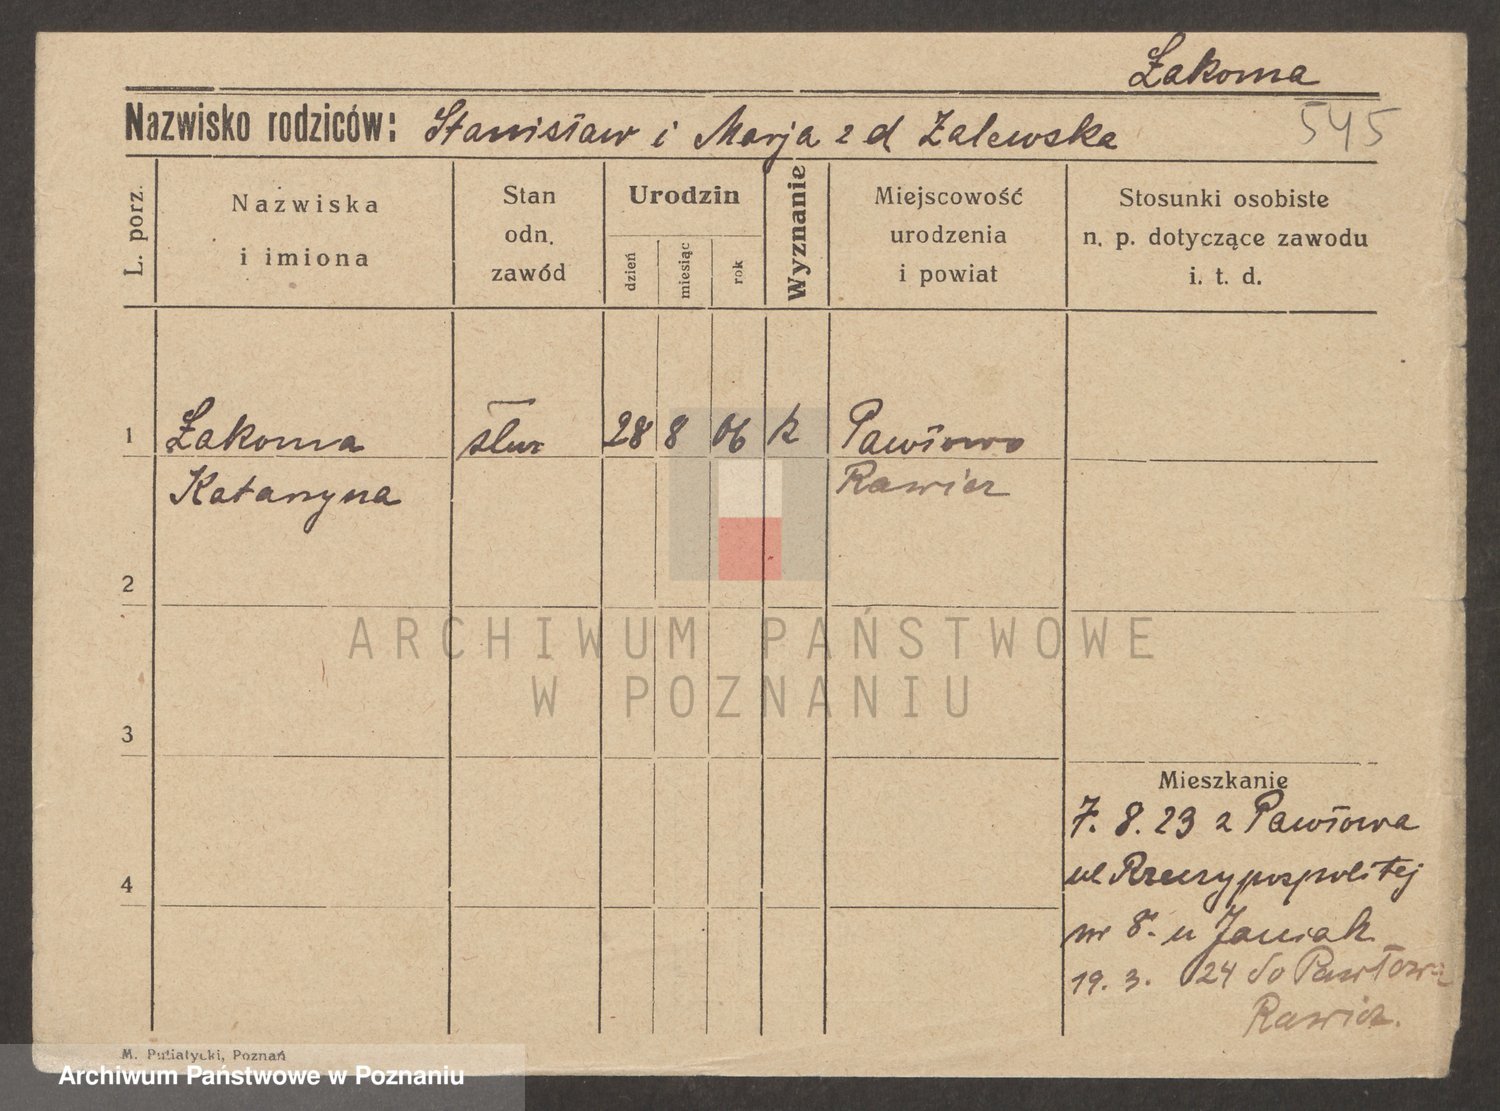 Żakoma
545
Nazwisko rodziców: Stanisław i Marja z d Zalewska
L. porz.
Nazwiska
i imiona
Stan
odn.
zawód
Urodzin
dzień
miesiąc
rok
Wyznanie
Miejscowość
urodzenia
i powiat
Stosunki osobiste
n. p. dotyczące zawodu
i. t. d.
1 Żakoma służ 28 8 06 k Pawłowo
Katarzyna Rawicz
2
ARCHIWUM PAŃSTWOWE
W POZNANIU
3
Mieszkanie
7. 8. 23 z Pawłowa
4
ul Rzeczypospolitej
nr 8. u Janiak
19. 3. 24 do Pawłowa
Rawicz.
M. Putiatycki, Poznań
Archiwum Państwowe w Poznaniu